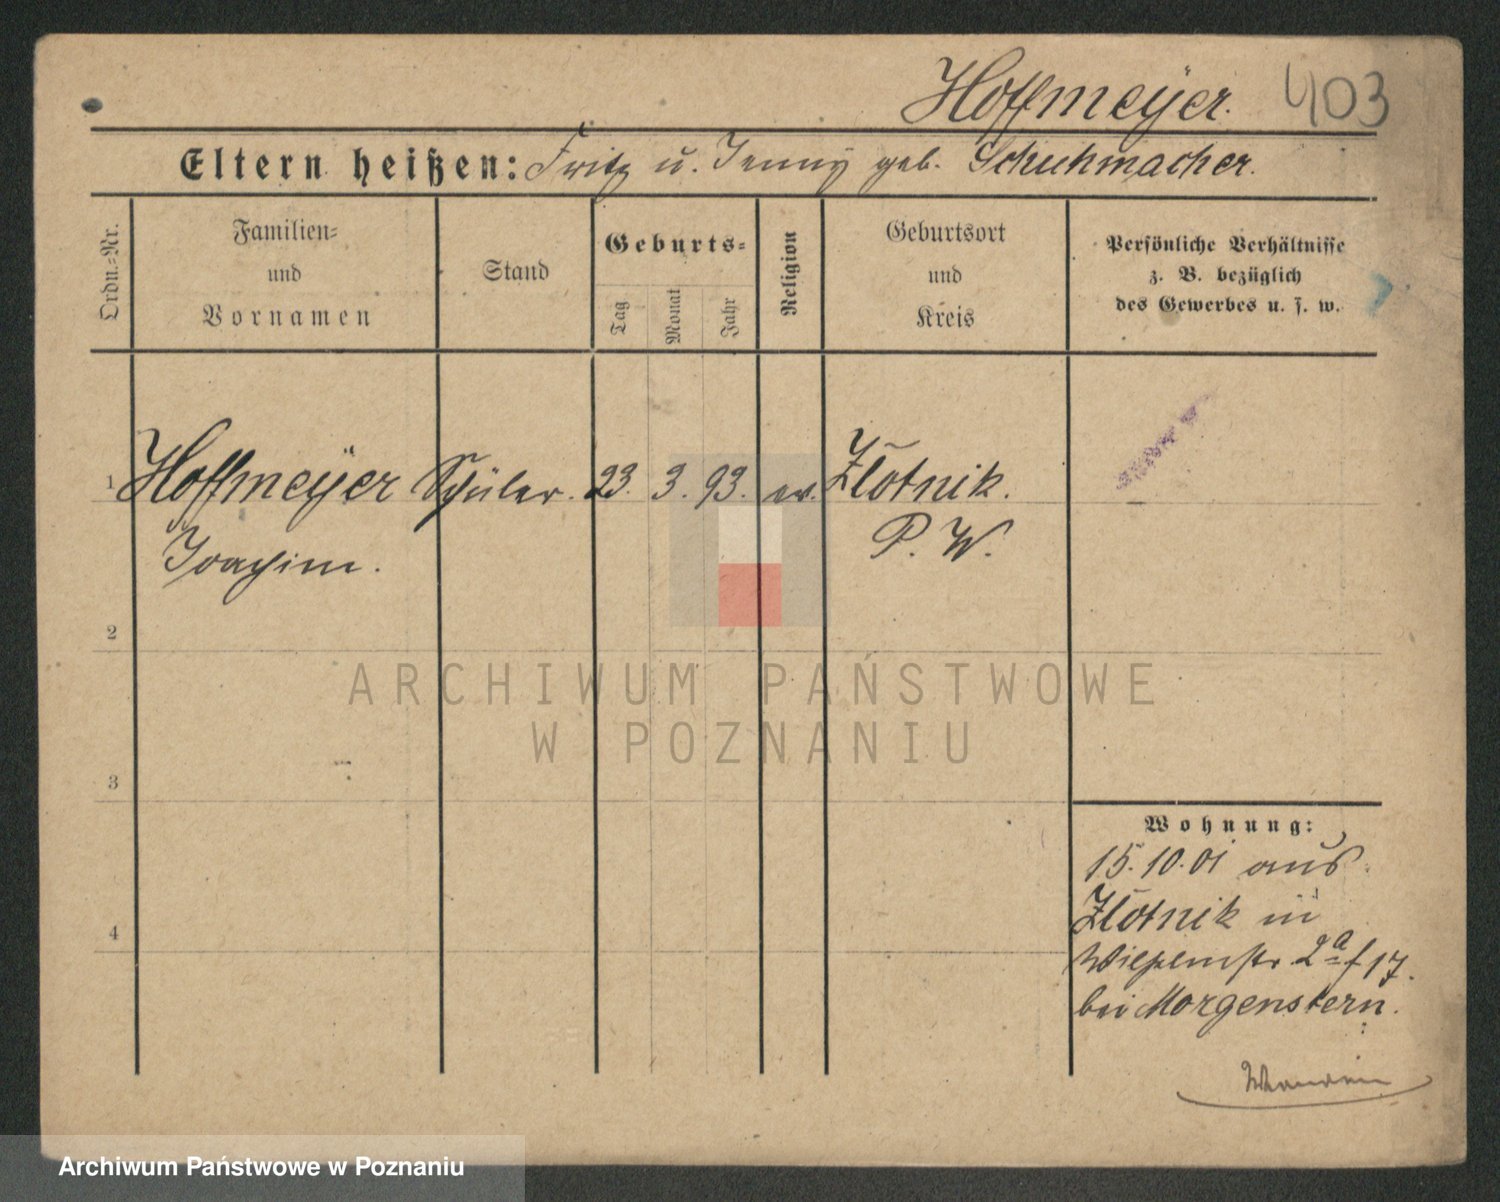 Hoffmeÿer. 403
Eltern heißen: Fritz u. Jenny geb. Schuhmacher.
Ordn.-Nr.
Familien-
und
Vornamen
Stand
Geburts-
Tag
Monat
Jahr
Religion
Geburtsort
und
Kreis
Persönliche Verhältnisse
z. B. bezüglich
des Gewerbes u. s. w.
1 Hoffmeÿer Schüler. 23. 3. 93. ev. Zlotnik.
Joachim. P. W.
2
3
4
Wohnung:
15.10.01 aus
Zlotnik in
2a f 17.
bei Morgenstern.
ARCHIWUM PAŃSTWOWE
W POZNANIU
Archiwum Państwowe w Poznaniu